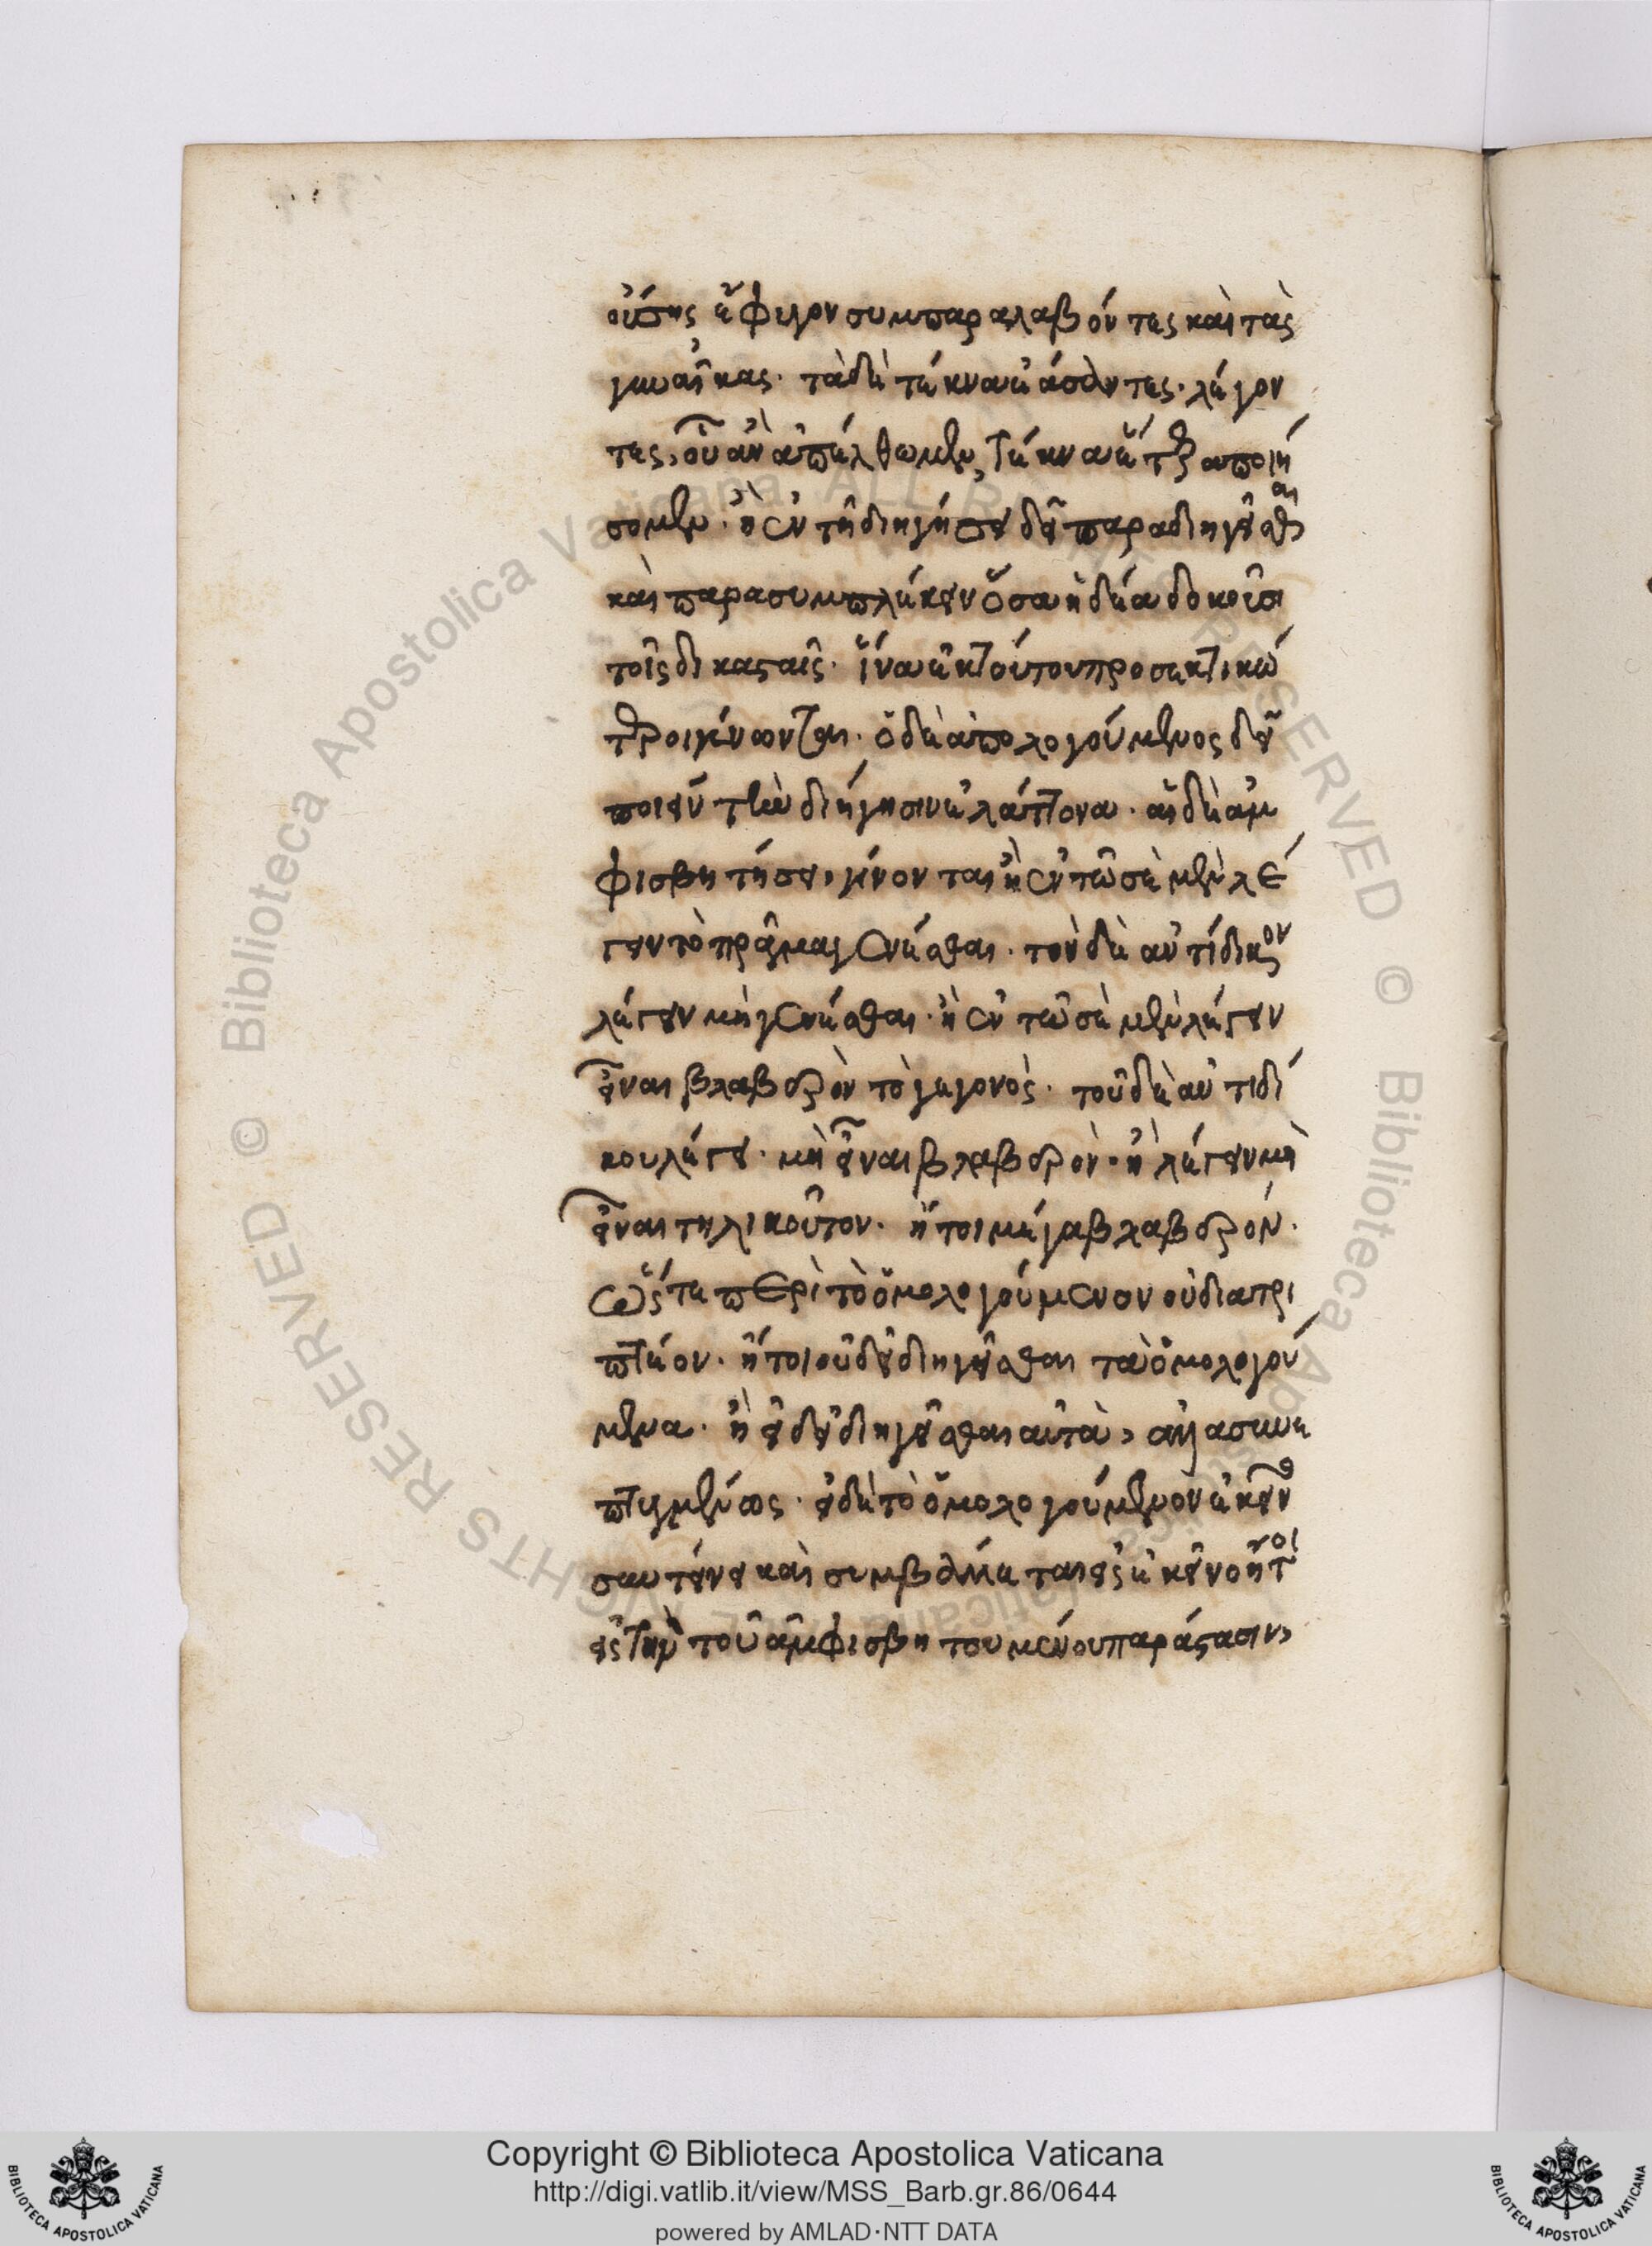 ούσης ἔφυγον συμπαραλαβόντες καὶ τὰς
γυναῖκας. τὰ δὲ τέκνα ἐάσαντες. λέγον
τες, οὗ ἂν ἀπέλθωμεν, τέκνα ἕτερα ποιή
σομεν. ἢ ἐν τῇ διηγήσει δεῖ παραδιηγεῖσθαι
καὶ παρασυμπλέκειν ὅσα ἡδέα δοκοῦσι
τοῖς δικασταῖς. ἵνα ἐκ τούτου προσεκτικώ
τεροι γένωνται. ὁ δὲ ἀπολογούμενος δεῖ
ποιεῖν τὴν διήγησιν ἐλάττονα. αἱ δὲ ἀμ
φισβητήσεις γίνονται ἢ ἐν τῷ σὲ μὲν λέ
γειν τὸ πρᾶγμα γενέσθαι. τὸν δὲ ἀντίδικον
λέγειν μὴ γενέσθαι. ἢ ἐν τῷ σὲ μὲν λέγειν
εἶναι βλαβερὸν τὸ γεγονός. τοῦ δὲ ἀντιδί
κου λέγει. μὴ εἶναι βλαβερόν. ἢ λέγειν μὴ
εἶναι τηλικοῦτον. ἤτοι μέγα βλαβερόν.
ὥστε περὶ τὸ ὁμολογούμενον οὐ διατρι
πτέον. ἤτοι οὐ δεῖ διηγεῖσθαι τὰ ὁμολογού
μενα. ἢ εἰ δεῖ διηγεῖσθαι αὐτὰ,
εἰ δὲ τὸ ὁμολογούμενον ἐκεῖν
καὶ συμβάλλεται εἰς ἐκεῖνο ἤτοι
εἰς τὴν τοῦ ἀμφισβητουμένου παράστασιν,